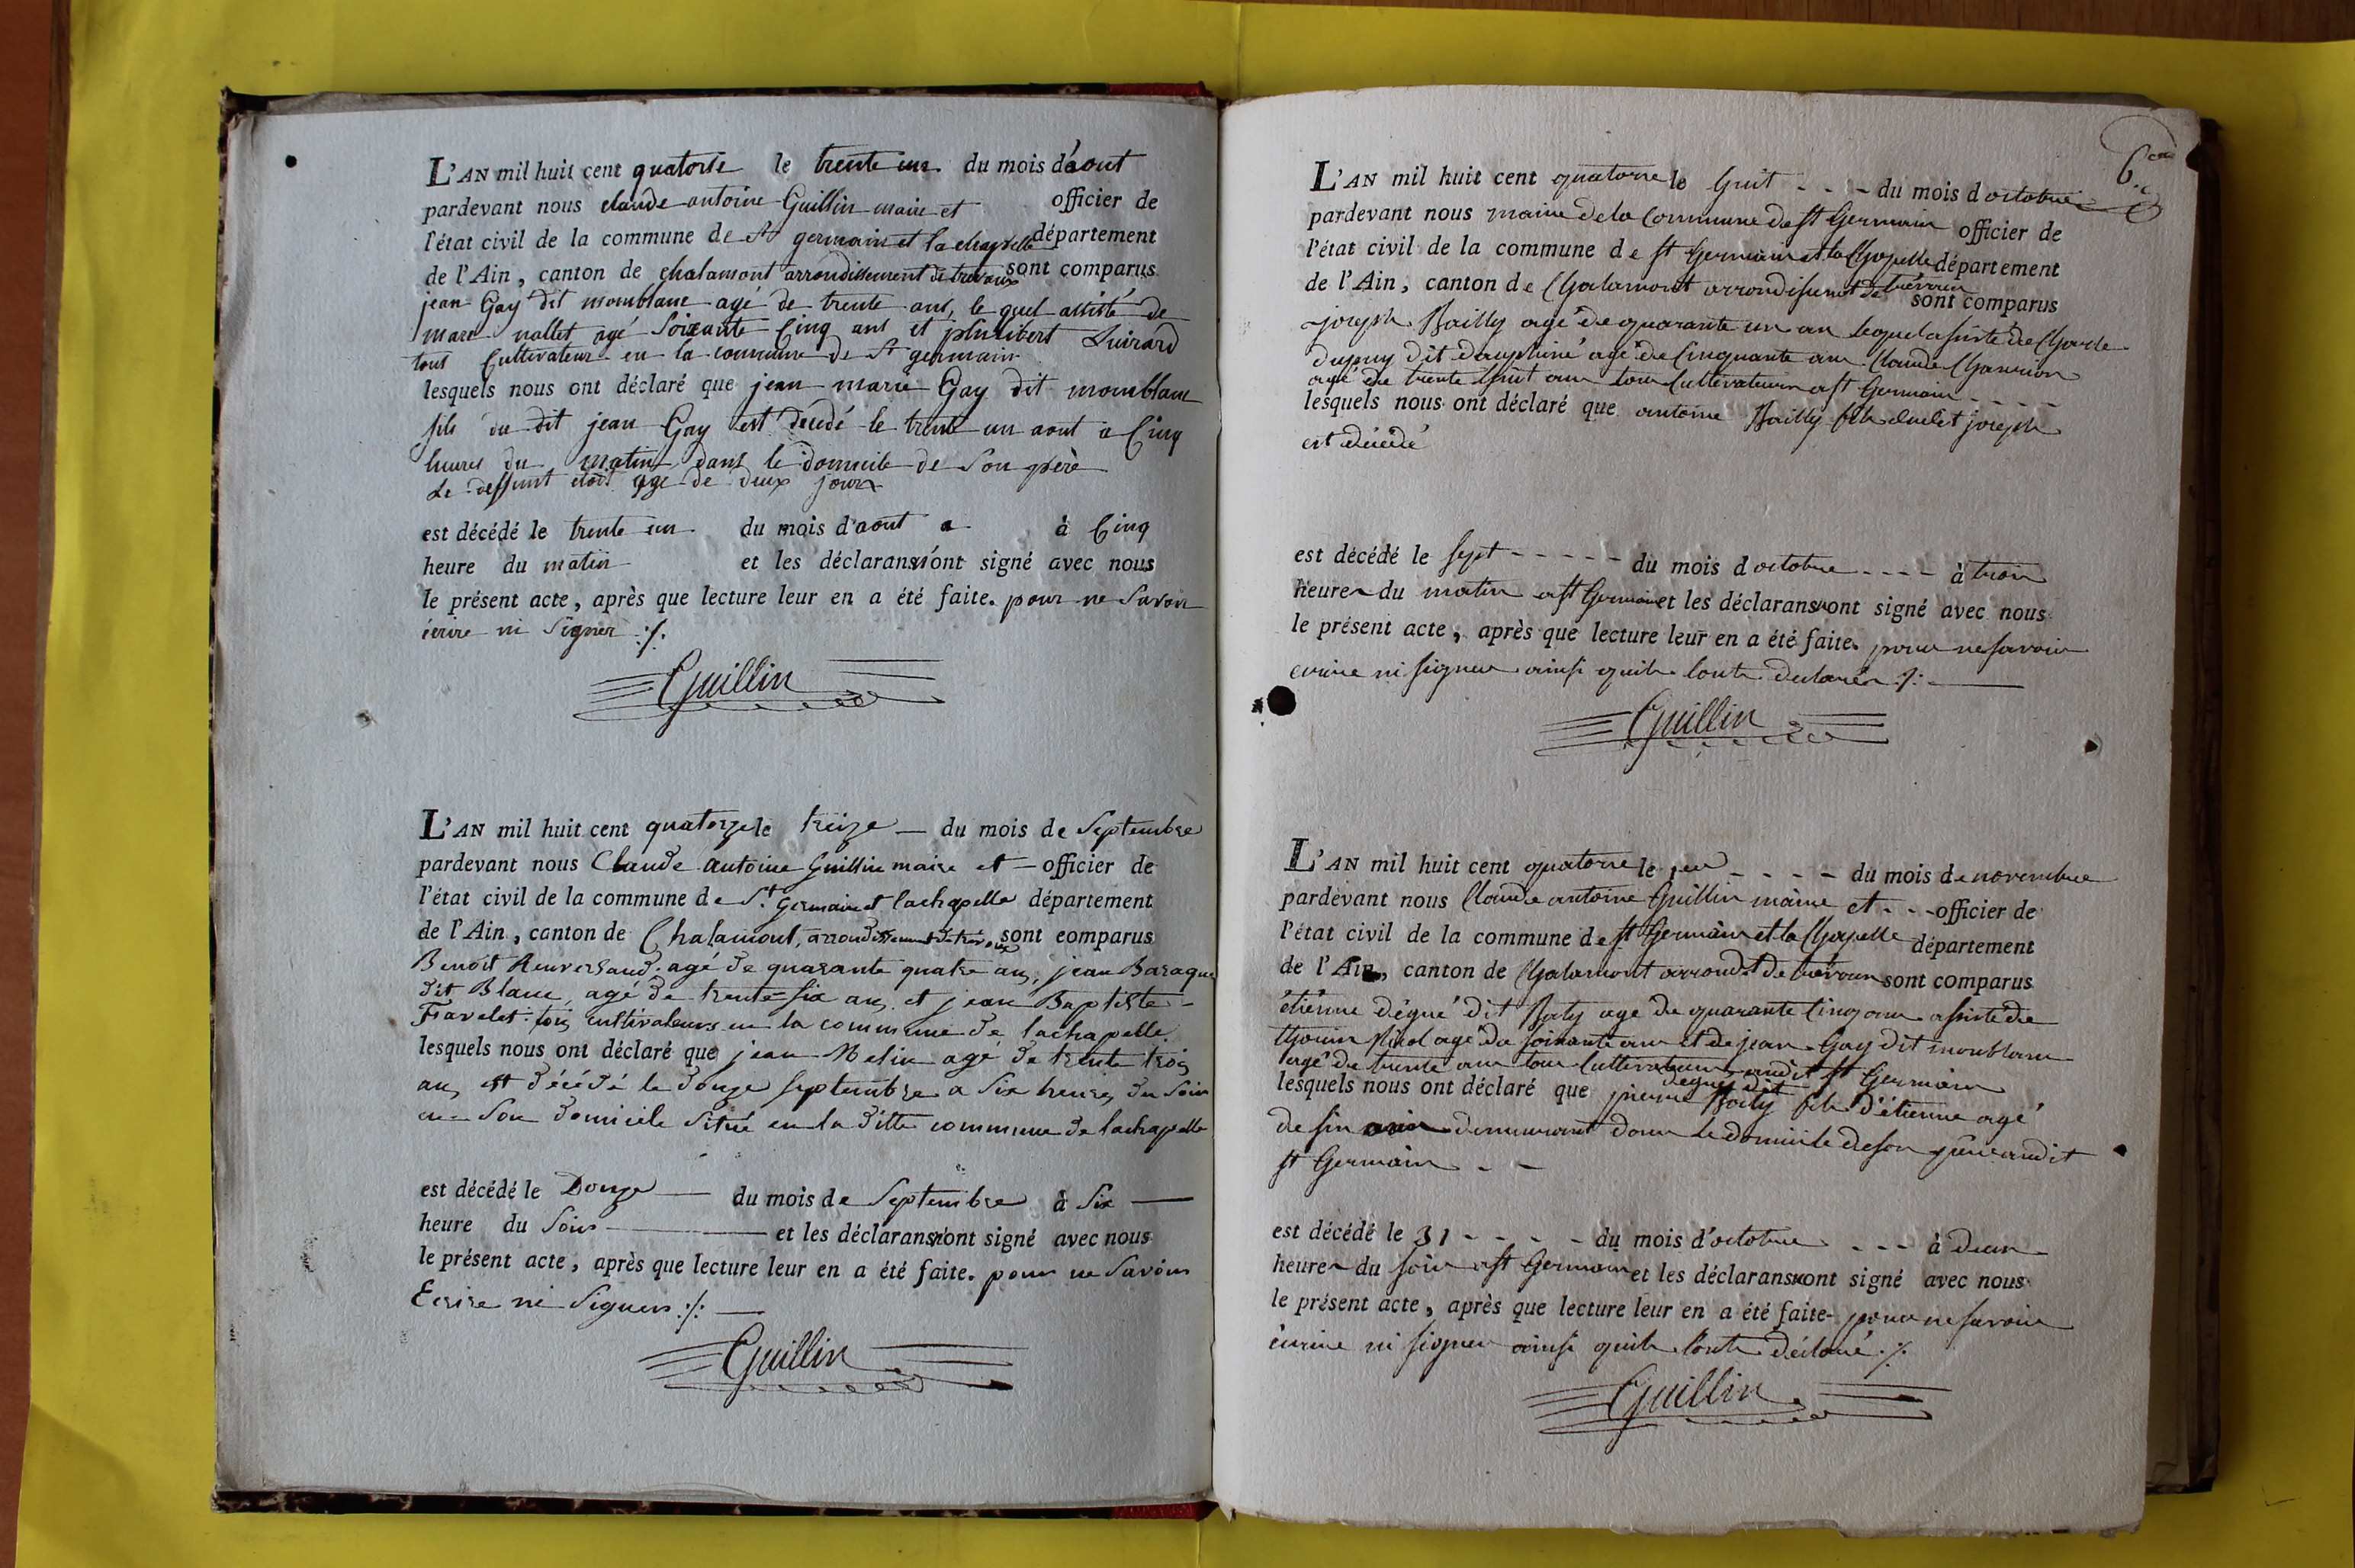 L'AN mil huit cent quatorse le trente un du mois d'aout
pardevant nous claude antoine Guillin maire et officier de
l'état civil de la commune de St germain et la chapelle département
de l'Ain, canton de chalamont arrondissement de trevoux sont comparus
jean Gay dit momblanc agé de trente ans, le quel assisté de
marc nallet agé soixante Cinq ans et philibert
tous Cultivateur en la commune de St germain
lesquels nous ont déclaré que jean marie Gay dit momblanc
fils du dit jean Gay est décédé le trente un aout a Cinq
heures du matin dans le domicile de Son père
Le deffunt etoit age de deux jours
est décédé le trente un du mois d'aout a à Cinq
heure du matin et les déclarans n'ont signé avec nous
le présent acte, après que lecture leur en a été faite. pour ne Savoir
écrire ni Signer ./.
Guillin
L'AN mil huit cent quatorze le treize — du mois de Septembre
pardevant nous Claude antoine Guillin maire et — officier de
l'état civil de la commune de St. Germain et lachapelle département
de l'Ain, canton de Chalamont, arrondissement de trévoux sont comparus
Benoît agé de quarante quatre ans, jean Baraque
dit Blanc, agé de trente-six ans, et jean Baptiste
Favelet tois cultivateurs en la commune de lachapelle.
lesquels nous ont déclaré que jean Melin agé de trente trois
ans, est décédé le douze septembre a six heures du Soir
en Son domicile Situé en la ditte commune de lachapelle
est décédé le Douze — du mois de Septembre à Six —
heure du Soir — et les déclarans n'ont signé avec nous
le présent acte, après que lecture leur en a été faite. pour ne Savoir
Ecrire ni Signer ./. —
Guillin
6
L'AN mil huit cent quatorze le huit - - - du mois d octobre
pardevant nous maire de la Commune de st Germain officier de
l'état civil de la commune de st Germain et la Chapelle département
de l'Ain, canton de Chalamont arrondisement de trévoux sont comparus
joseph Bailly agé de quarante un an lequel assisté de Charle
dupuy dit dauphiné agé de Cinquante ans Claude
agé de trente huit ans tous Cultivateurs a st Germain - - - -
lesquels nous ont déclaré que antoine Bailly fils dudit joseph
est décédé
est décédé le sept - - - - - du mois d octobre - - - - à trois
heures du matin a st Germain et les déclarans n'ont signé avec nous
le présent acte, après que lecture leur en a été faite. pour ne savoir
ecrire ni signer ainsi quils l'ont declarés ./. —
Guillin
L'AN mil huit cent quatorze le - - - - du mois de novembre
pardevant nous Claude antoine Guillin maire et - - - officier de
l'état civil de la commune de st Germain et la Chapelle département
de l'Ain, canton de Chalamont arrondt de trévoux sont comparus
étiénne dégué dit Baty agé de quarante Cinq ans assisté de
agé de soixante ans et de jean Gay dit monblanc
agé de trente ans tous Cultivateurs audit st Germain
degué dit
lesquels nous ont déclaré que pierre Baty fils d'étienne agé
de six demeurant dans le domicile de son père audit
st Germain - -
est décédé le 31 - - - - du mois d'octobre - - - à deux
heures du soir a st Germain et les déclarans n'ont signé avec nous
le présent acte, après que lecture leur en a été faite pour ne savoir
écrire ni signer ainsi quils l'ont déclaré ./.
Guillin